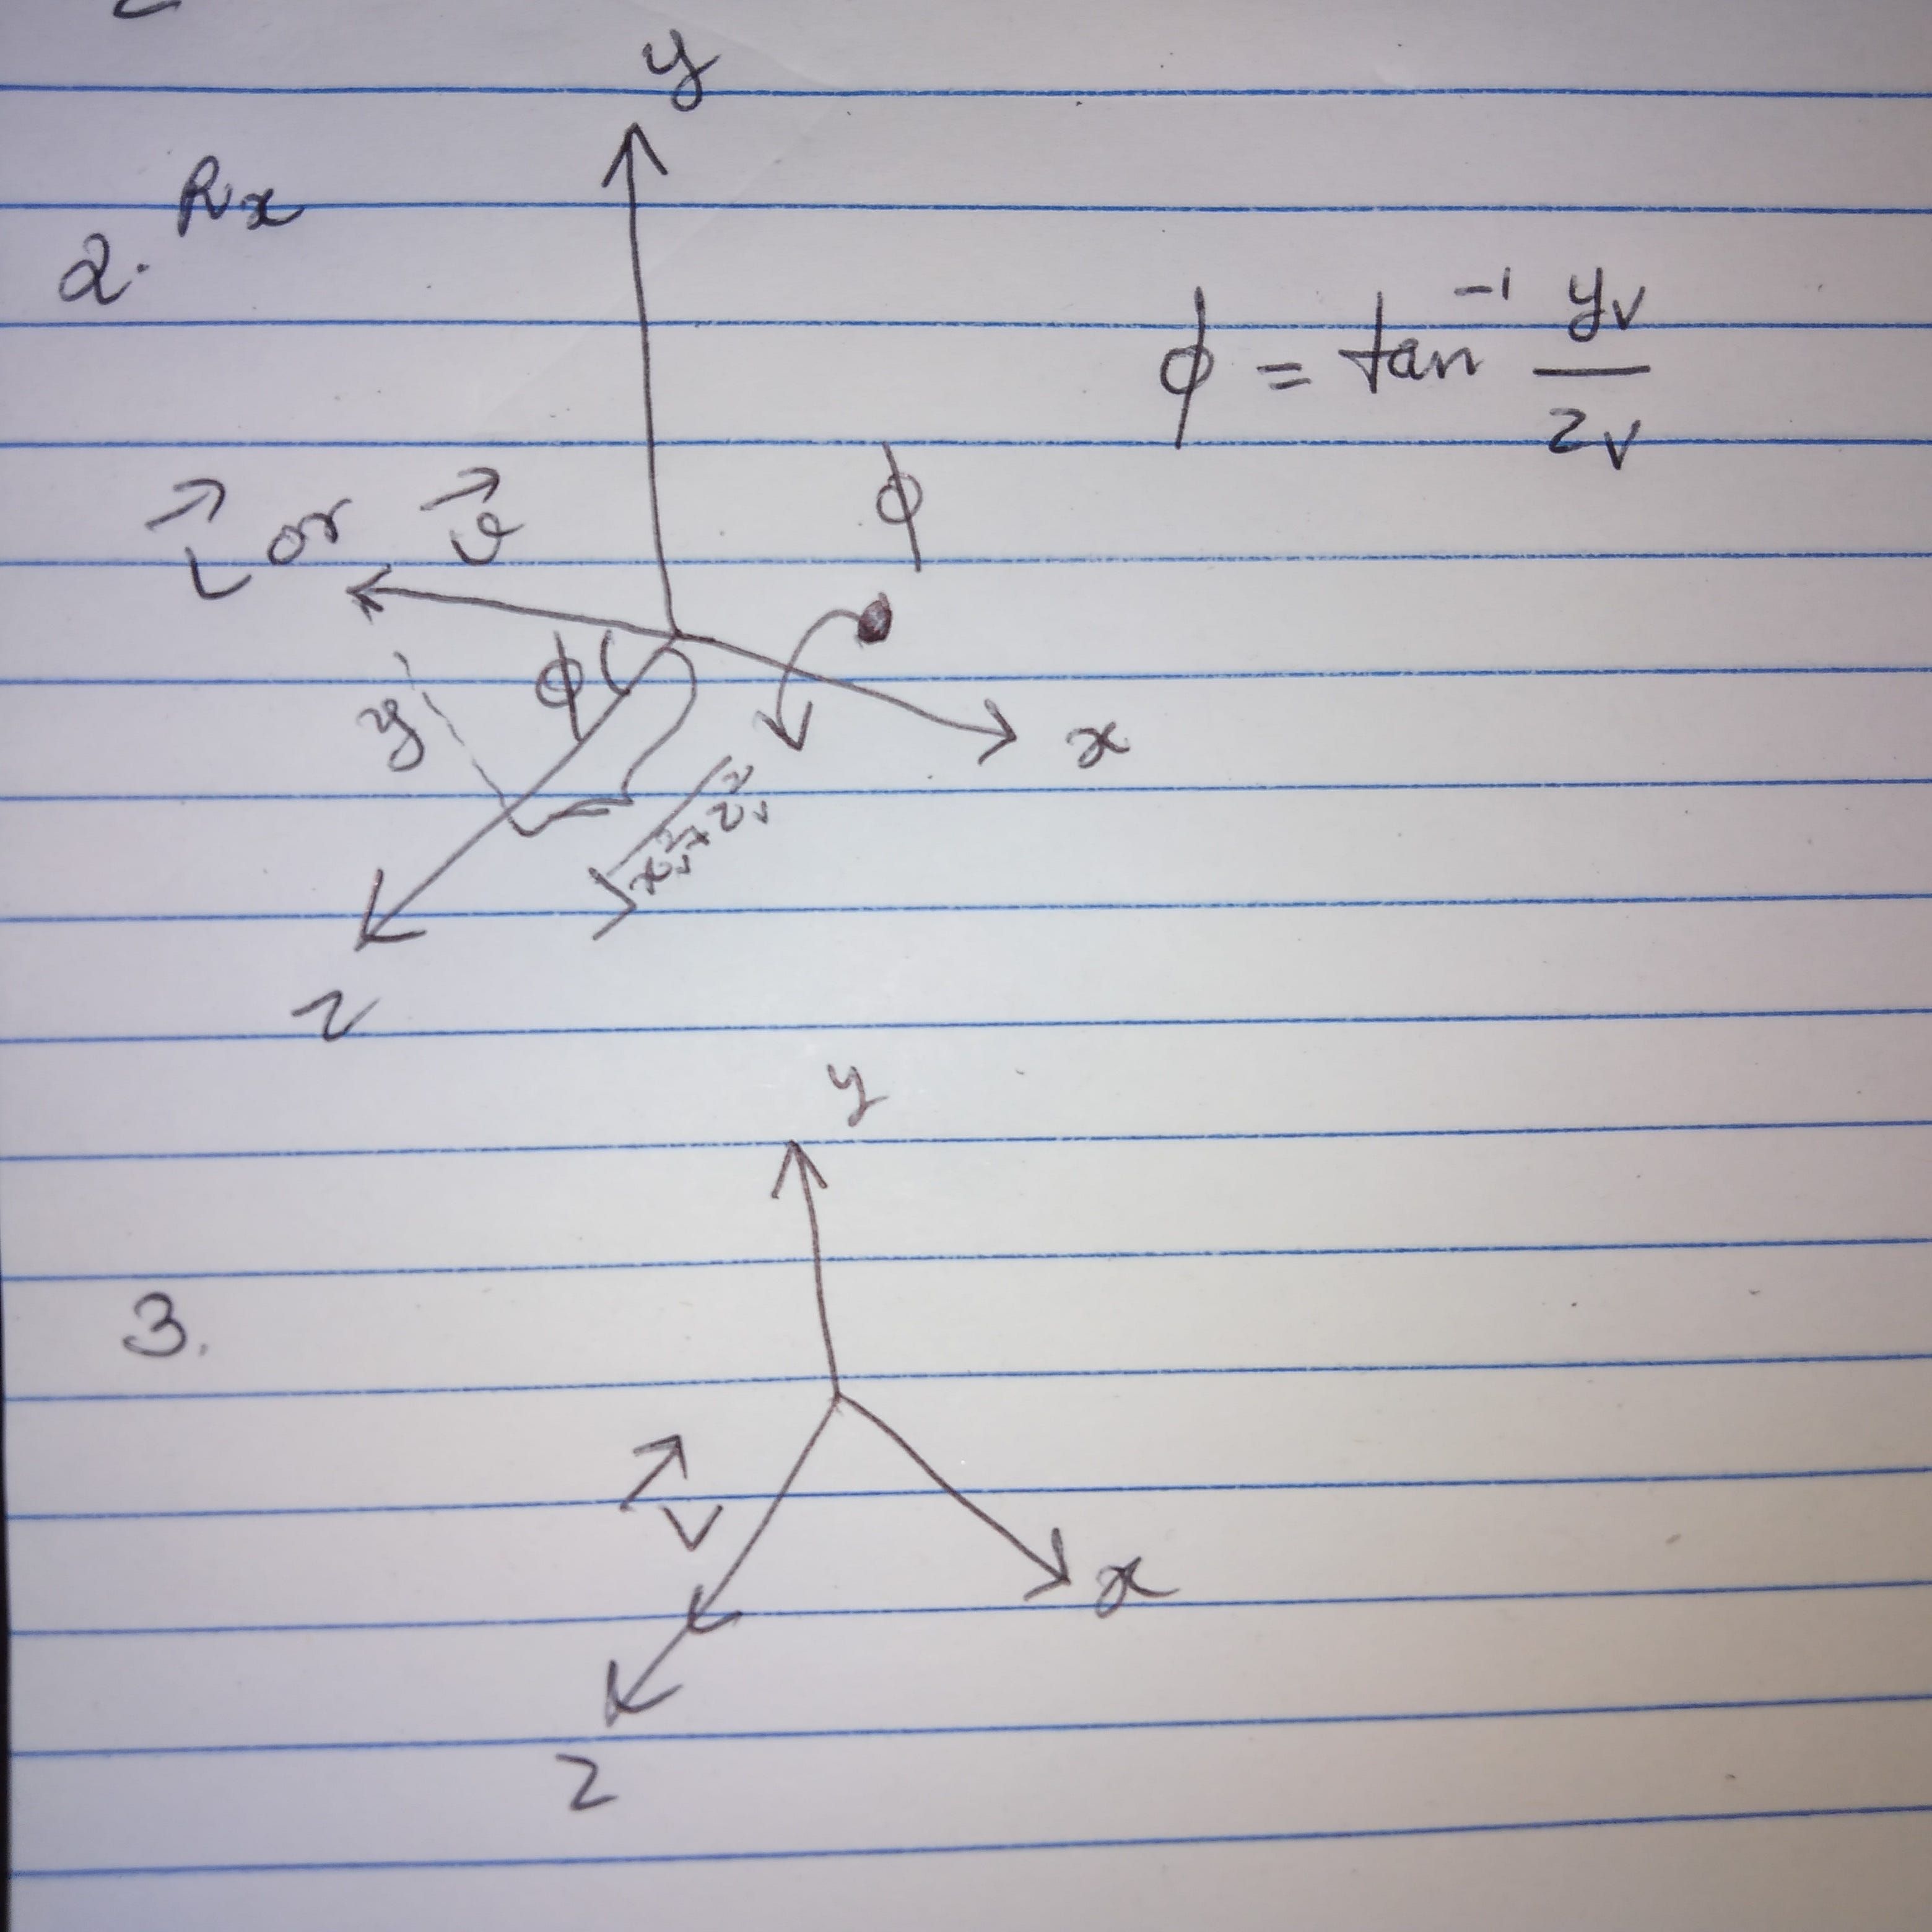 y
2. Rx
ϕ = tan⁻¹ yv/zv
L⃗ or v⃗
ϕ
ϕ
y
x
√(xv² + zv²)
z
y
3.
V⃗
x
z